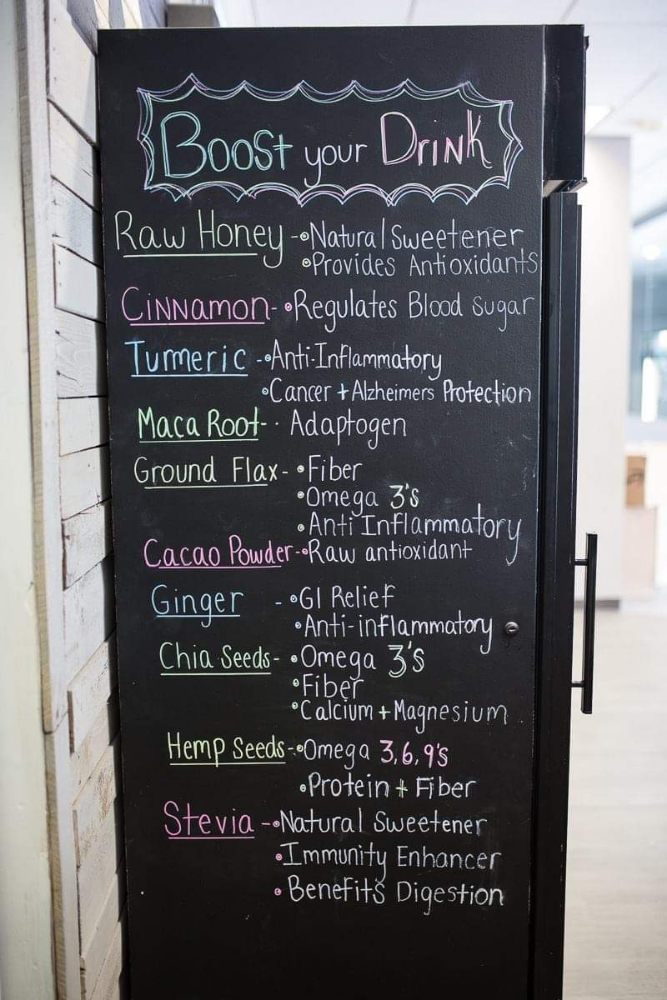 Boost your Drink
Raw Honey - •Natural Sweetener
•Provides Antioxidants
Cinnamon - •Regulates Blood Sugar
Turmeric - •Anti-Inflammatory
•Cancer + Alzheimers Protection
Maca Root - · Adaptogen
Ground Flax - •Fiber
•Omega 3's
•Anti Inflammatory
Cacao Powder - •Raw antioxidant
Ginger - •GI Relief
•Anti-inflammatory
Chia Seeds - •Omega 3's
•Fiber
•Calcium + Magnesium
Hemp Seeds - •Omega 3,6,9's
•Protein + Fiber
Stevia - •Natural Sweetener
•Immunity Enhancer
•Benefits Digestion